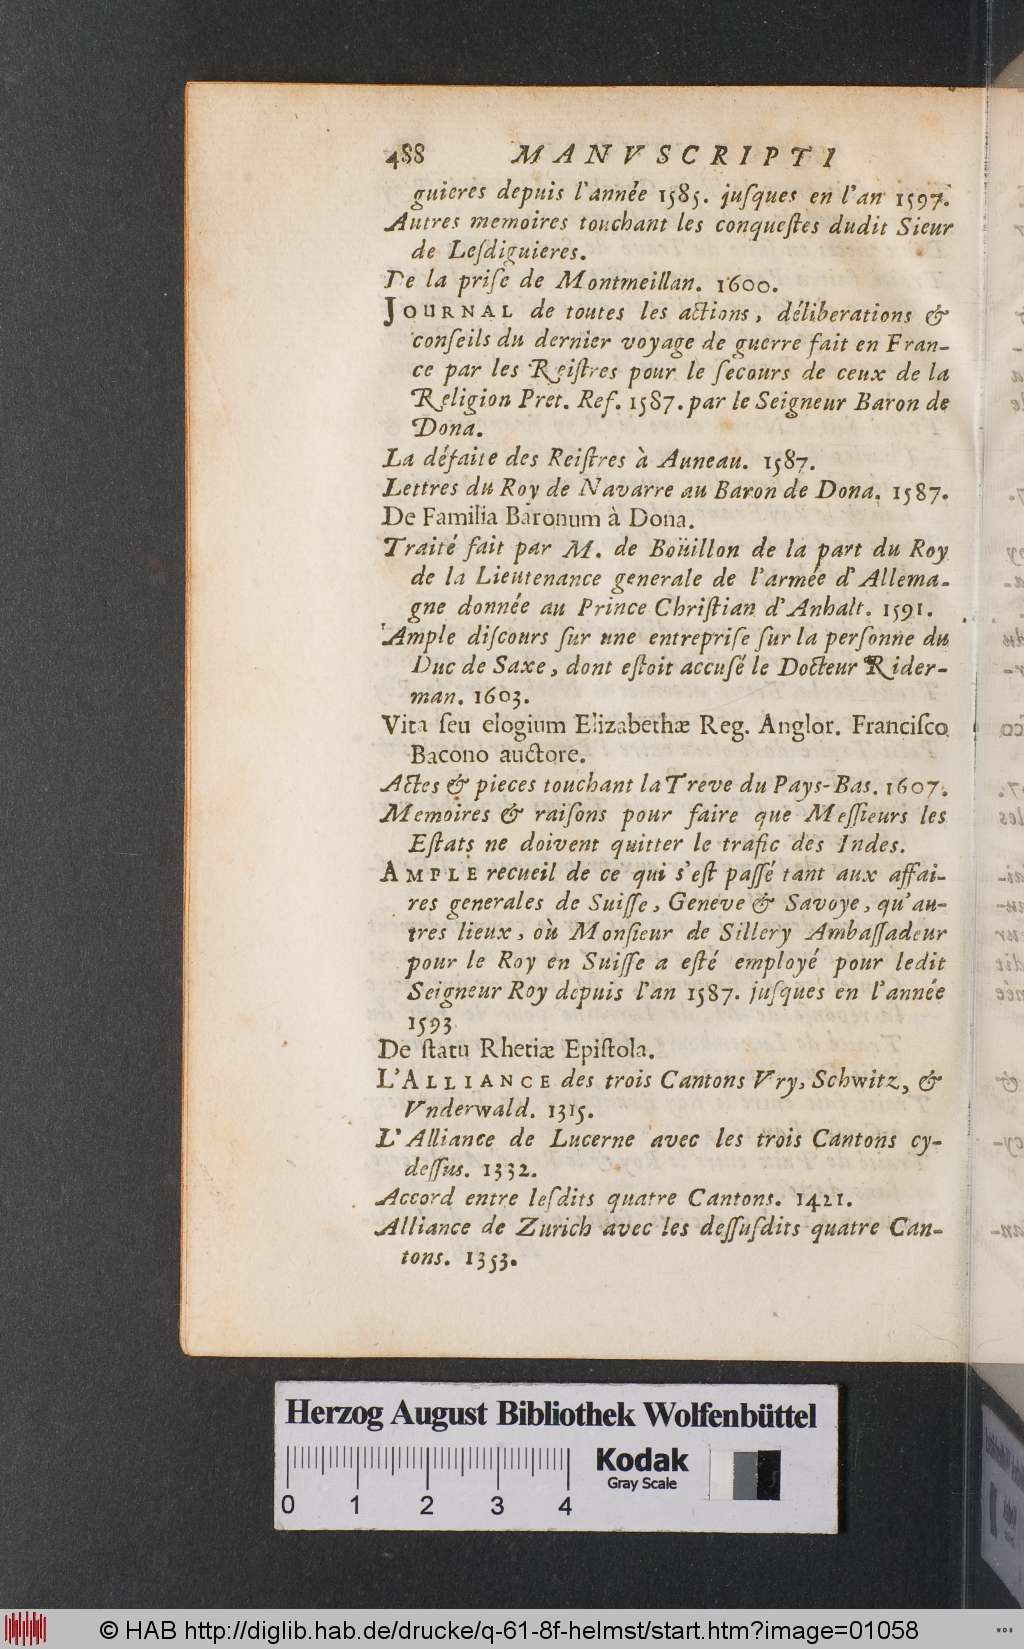 488 MANVSCRIPTI
guieres depuis l'année 1585. juſques en l'an 1597.
Autres memoires touchant les conqueſtes dudit Sieur
de Leſdiguieres.
De la priſe de Montmeillan. 1600.
JOURNAL de toutes les actions, déliberations &
conſeils du dernier voyage de guerre fait en Fran-
ce par les Reiſtres pour le ſecours de ceux de la
Religion Pret. Ref. 1587. par le Seigneur Baron de
Dona.
La défaite des Reiſtres à Auneau. 1587.
Lettres du Roy de Navarre au Baron de Dona. 1587.
De Familia Baronum à Dona.
Traité fait par M. de Boüillon de la part du Roy
de la Lieutenance generale de l'armée d'Allema-
gne donnée au Prince Chriſtian d'Anhalt. 1591.
Ample diſcours ſur une entrepriſe ſur la perſonne du
Duc de Saxe, dont eſtoit accuſé le Docteur Rider-
man. 1603.
Vita ſeu elogium Elizabethæ Reg. Anglor. Franciſco
Bacono auctore.
Actes & pieces touchant la Treve du Pays-Bas. 1607.
Memoires & raiſons pour faire que Meſſieurs les
Eſtats ne doivent quitter le trafic des Indes.
AMPLE recueil de ce qui s'eſt paſſé tant aux affai-
res generales de Suiſſe, Geneve & Savoye, qu'au-
tres lieux, où Monſieur de Sillery Ambaſſadeur
pour le Roy en Suiſſe a eſté employé pour ledit
Seigneur Roy depuis l'an 1587. juſques en l'année
1593
De ſtatu Rhetiæ Epiſtola.
L'ALLIANCE des trois Cantons Vry, Schwitz, &
Vnderwald. 1315.
L'Alliance de Lucerne avec les trois Cantons cy-
deſſus. 1332.
Accord entre leſdits quatre Cantons. 1421.
Alliance de Zurich avec les deſſuſdits quatre Can-
tons. 1353.
Herzog August Bibliothek Wolfenbüttel
Kodak
Gray Scale
0 1 2 3 4
© HAB http://diglib.hab.de/drucke/q-61-8f-helmst/start.htm?image=01058